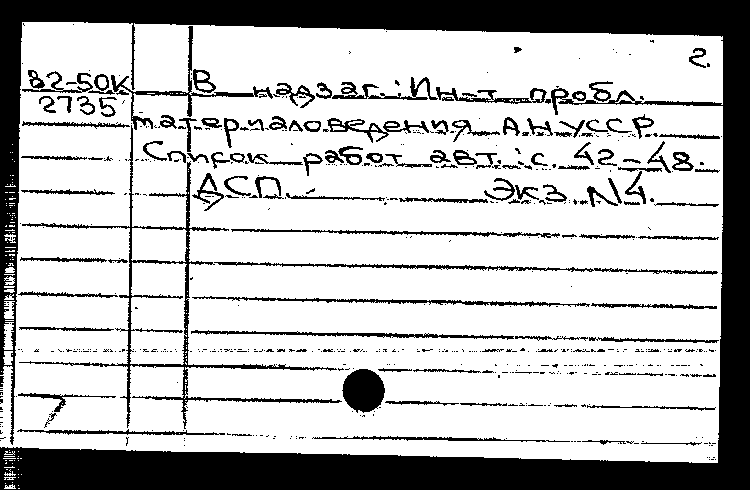 2.
82-50К В надзаг.: Ин-т пробл.
2735 материаловедения АН УССР.
Список работ авт.: с. 42-48.
ДСП. Экз. N4.
7